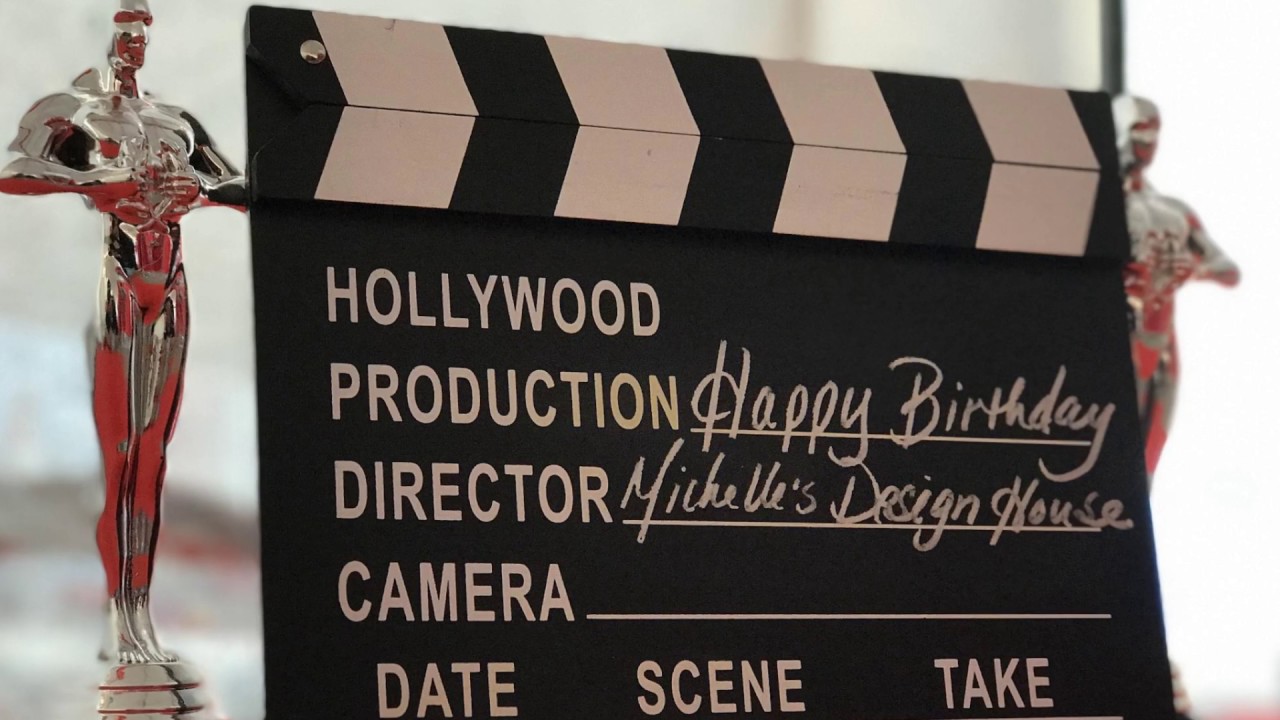 HOLLYWOOD
PRODUCTION Happy Birthday
DIRECTOR Michelle's Design House
CAMERA
DATE SCENE TAKE